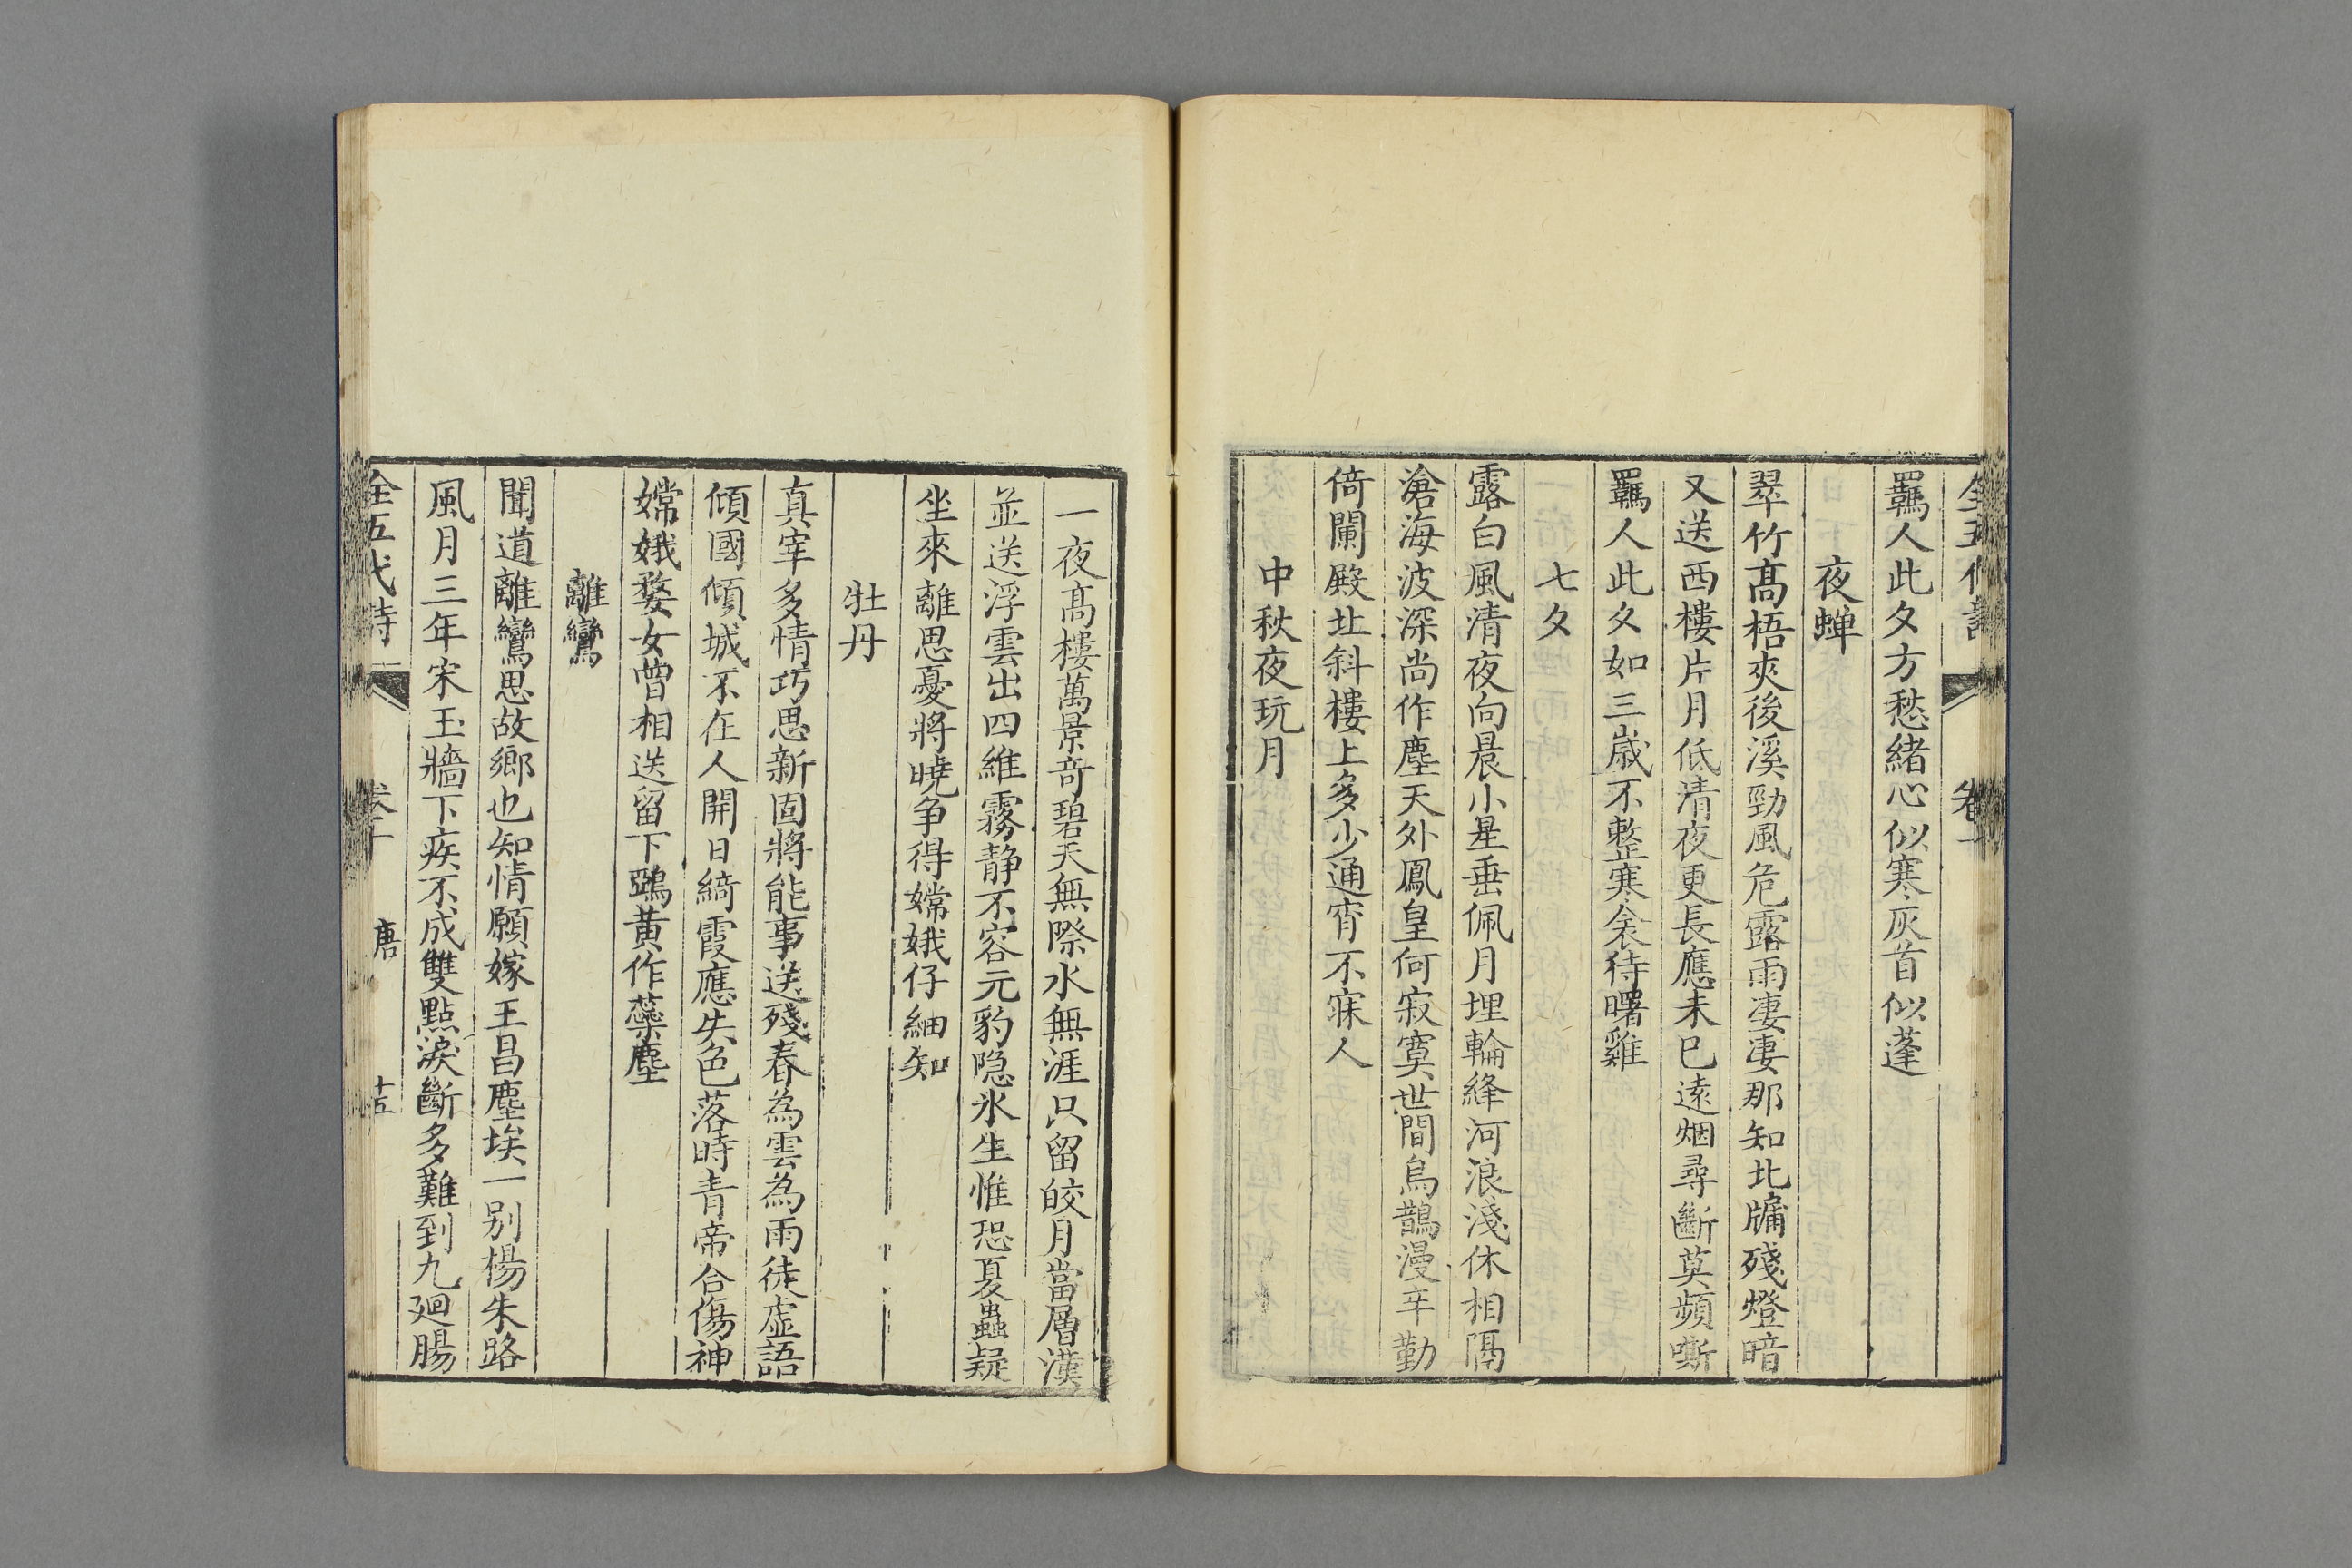 羈人此夕方愁緒心似寒灰首似蓬
夜蟬
翠竹高梧夾後溪勁風危露雨淒淒那知北牖殘燈暗
又送西樓片月低清夜更長應未巳遠烟尋斷莫頻嘶
羈人此夕如三歲不整寒衾待曙雞
七夕
露白風清夜向晨小星垂佩月埋輪絳河浪淺休相隔
滄海波深尚作塵天外鳳皇何寂寞世間烏鵲漫辛勤
倚闌殿北斜樓上多少通宵不寐人
中秋夜玩月
一夜高樓萬景奇碧天無際水無涯只留皎月當層漢
並送浮雲出四維霧静不容元豹隐氷生惟恐夏蟲疑
坐來離思憂將曉争得嫦娥仔細知
牡丹
真宰多情巧思新固將能事送殘春為雲為雨徒虚語
傾國傾城不在人開日綺霞應失色落時青帝合傷神
嫦娥婺女曾相送留下鵶黃作蘂塵
離鸞
聞道離鸞思故鄉也知情願嫁王昌塵埃一别楊朱路
風月三年宋玉牆下疾不成雙點淚斷多難到九廻腸
全五代詩 卷十 唐 十五